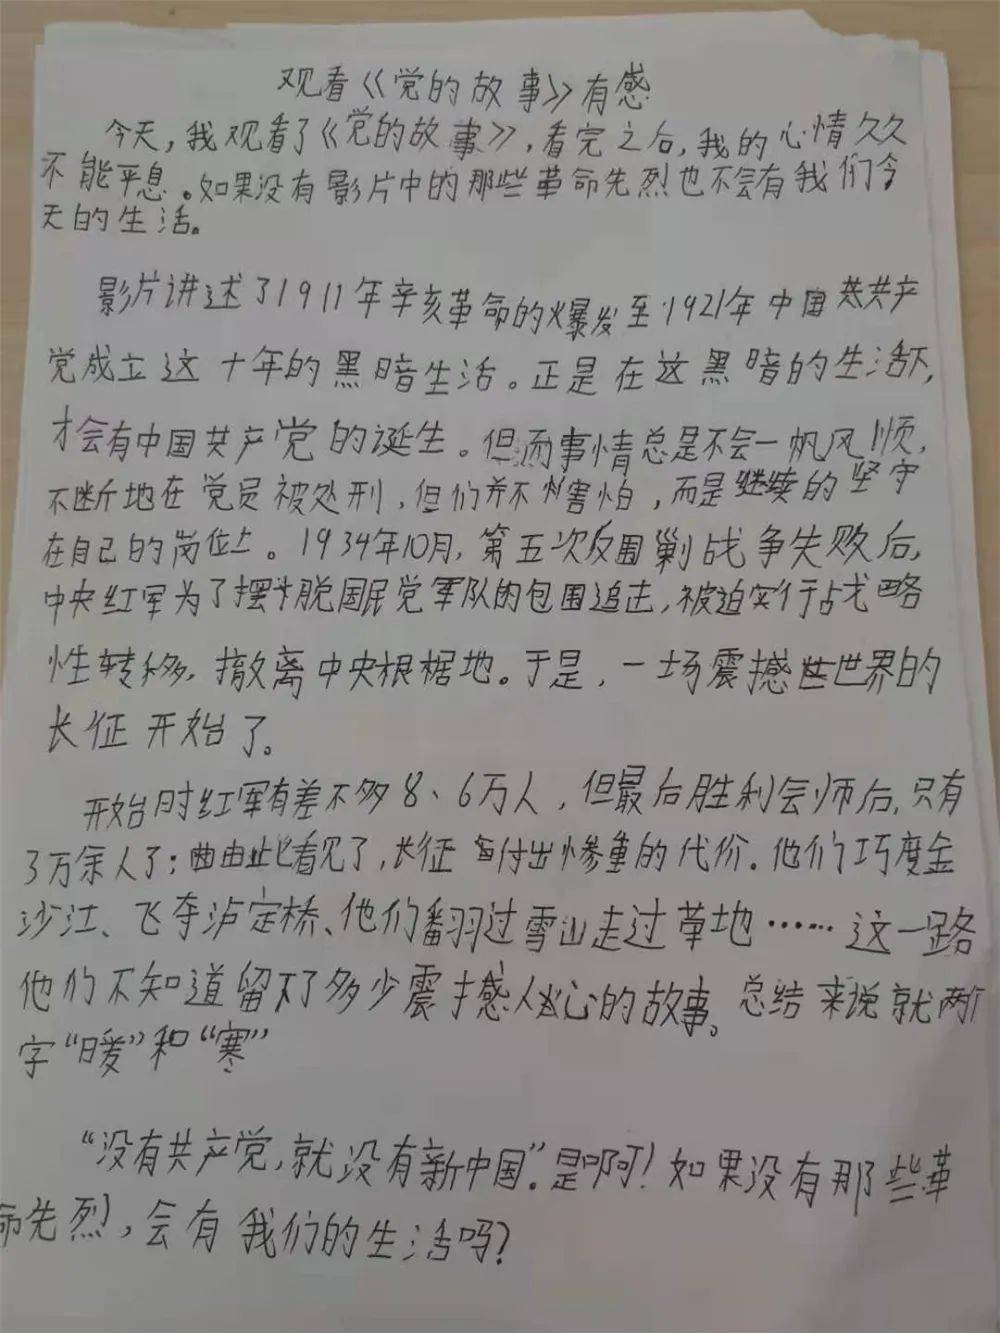 观看《党的故事》有感
今天，我观看了《党的故事》，看完之后，我的心情久久
不能平息。如果没有影片中的那些革命先烈也不会有我们今
天的生活。
影片讲述了1911年辛亥革命的爆发至1921年中国共产
党成立这十年的黑暗生活。正是在这黑暗的生活下，
才会有中国共产党的诞生。但而事情总是不会一帆风顺，
不断地在党员被处刑，但们并不害怕，而是继续的坚守
在自己的岗位上。1934年10月，第五次反围剿战争失败后，
中央红军为了摆脱国民党军队的包围追击，被迫实行战略
性转移，撤离中央根椐地。于是，一场震撼世界的
长征开始了。
开始时红军有差不多8、6万人，但最后胜利会师后，只有
3万余人了；由此看见了，长征付出惨重的代价。他们巧度金
沙江、飞夺泸定桥、他们翻过雪山走过草地……这一路
他们不知道留下了多少震撼人心的故事。总结来说就两个
字“暖”和“寒”
“没有共产党，就没有新中国”。是啊！如果没有那些革
命先烈，会有我们的生活吗？